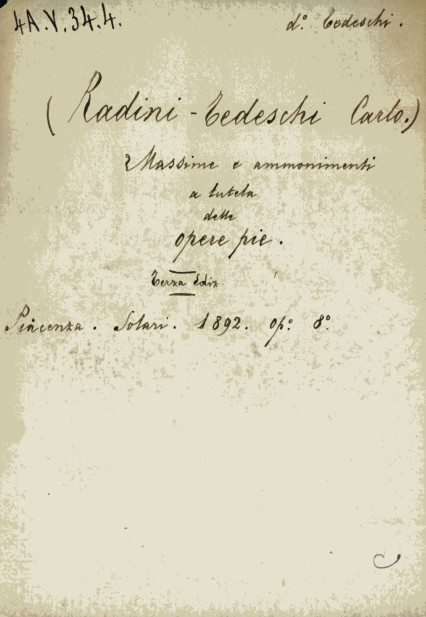 4A.V.34.4.
d.° Tedeschi.
(Radini-Tedeschi Carlo.)
Massime e ammonimenti
a tutela
delle
opere pie.
Terza Ediz.
Piacenza. Solari. 1892. op.° 8.°